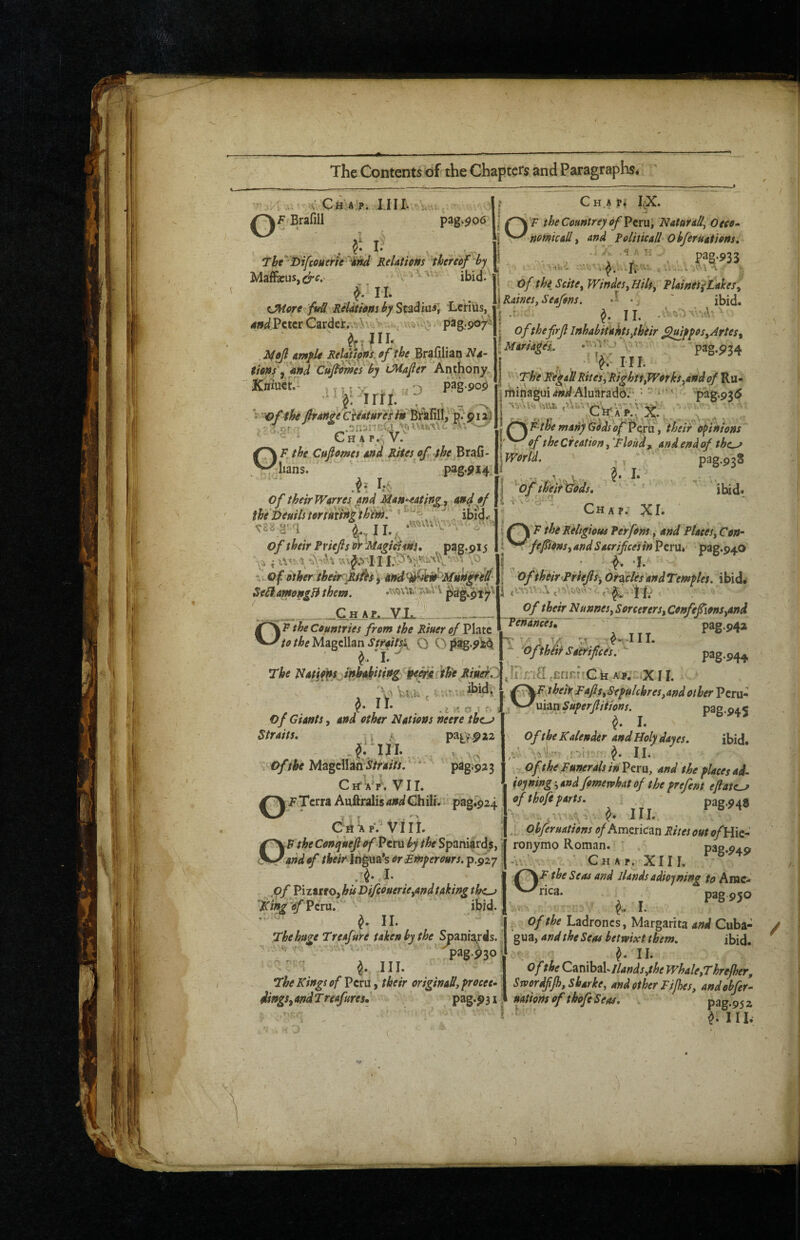 The Contents of the Chapters and Paragraphs.
CHAP. IIII.
OF Brasill pag.906
§. I.
The Discouerie and Relations thereof by
Maffæus, &c. ibid.
§. II.
More full Relations by Stadius, Lerius,
and Peter Carder. pag.907
§. III.
Most ample Relations of the Brasilian Na-
tions, and Customes by Master Anthony
Kniuet. pag.909
§. IIII.
Of the strange Creatures in Brasill, p. 912
CHAP. V.
OF the Customes and Rites of the Brasi-
lians. pag.914
§. I.
Of their Warres and Man-eating, and of
the Deuils torturing them. ibid.
§. II.
Of their Priests or Magicians. pag.915
§. III.
Of other their Rites, and a new Mungrell
Sect amongst them. pag.917
CHAP. VI.
OF the Countries from the Riuer of Plate
to the Magellan Straits.
§. I.
The Nations inhabiting neere the Riuer.
ibid.
§. II.
Of Giants, and other Nations neere the
Straits. pag.922
§. III.
Of the Magellan Straits. pag.923
CHAP. VII.
OF Terra Australis and Chili. pag.924
CHAP. VIII.
OF the Conquest of Peru by the Spaniards,
and of their Ingua's or Emperours. p.927
§. I.
Of Pizarro, his Discouerie, and taking the
King of Peru. ibid.
§. II.
The huge Treasure taken by the Spaniards.
pag.930
§. III.
The Kings of Peru, their originall, procee-
dings, and Treasures. pag.931
CHAP. IX.
OF the Countrey of Peru, Naturall, Oeco-
nomicall, and Politicall Obseruations.
pag.933
§. I.
Of the Scite, Windes, Hils, Plaines, Lakes,
Raines, Seasons. ibid.
§. II.
Of the first Inhabitants, their Quippos, Artes,
Mariages. pag.934
§. III.
The Regall Rites, Rights, Works, and of Ru-
minagui and Aluarado. pag.936
CHAP. X.
OF the many Gods of Peru, their opinions
of the Creation, Floud, and end of the
World. pag.938
§. I.
Of their Gods. ibid.
CHAP. XI.
OF the Religious Persons, and Places, Con-
fessions, and Sacrifices in Peru. pag.940
§. I.
Of their Priests, Oracles and Temples. ibid.
§. II.
Of their Nunnes, Sorcerers, Confessions, and
Penances. pag.942
§. III.
Of their Sacrifices. pag.944
CHAP. XII.
OF their Fasts, Sepulchres, and other Peru-
uian Superstitions. pag.945
§. I.
Of the Kalender and Holy dayes. ibid.
§. II.
Of the Funerals in Peru, and the places ad-
ioyning, and somewhat of the present estate
of those parts. pag.948
§. III.
Obseruations of American Rites out of Hie-
ronymo Roman. pag.949
CHAP. XIII.
OF the Seas and Ilands adioyning to Ame-
rica. pag 950
§. I.
Of the Ladrones, Margarita and Cuba-
gua, and the Seas betwixt them. ibid.
§. II.
Of the Canibal-Ilands, the Whale, Thresher,
Swordfish, Sharke, and other Fishes, and obser-
uations of those Seas. pag.952
§. III.